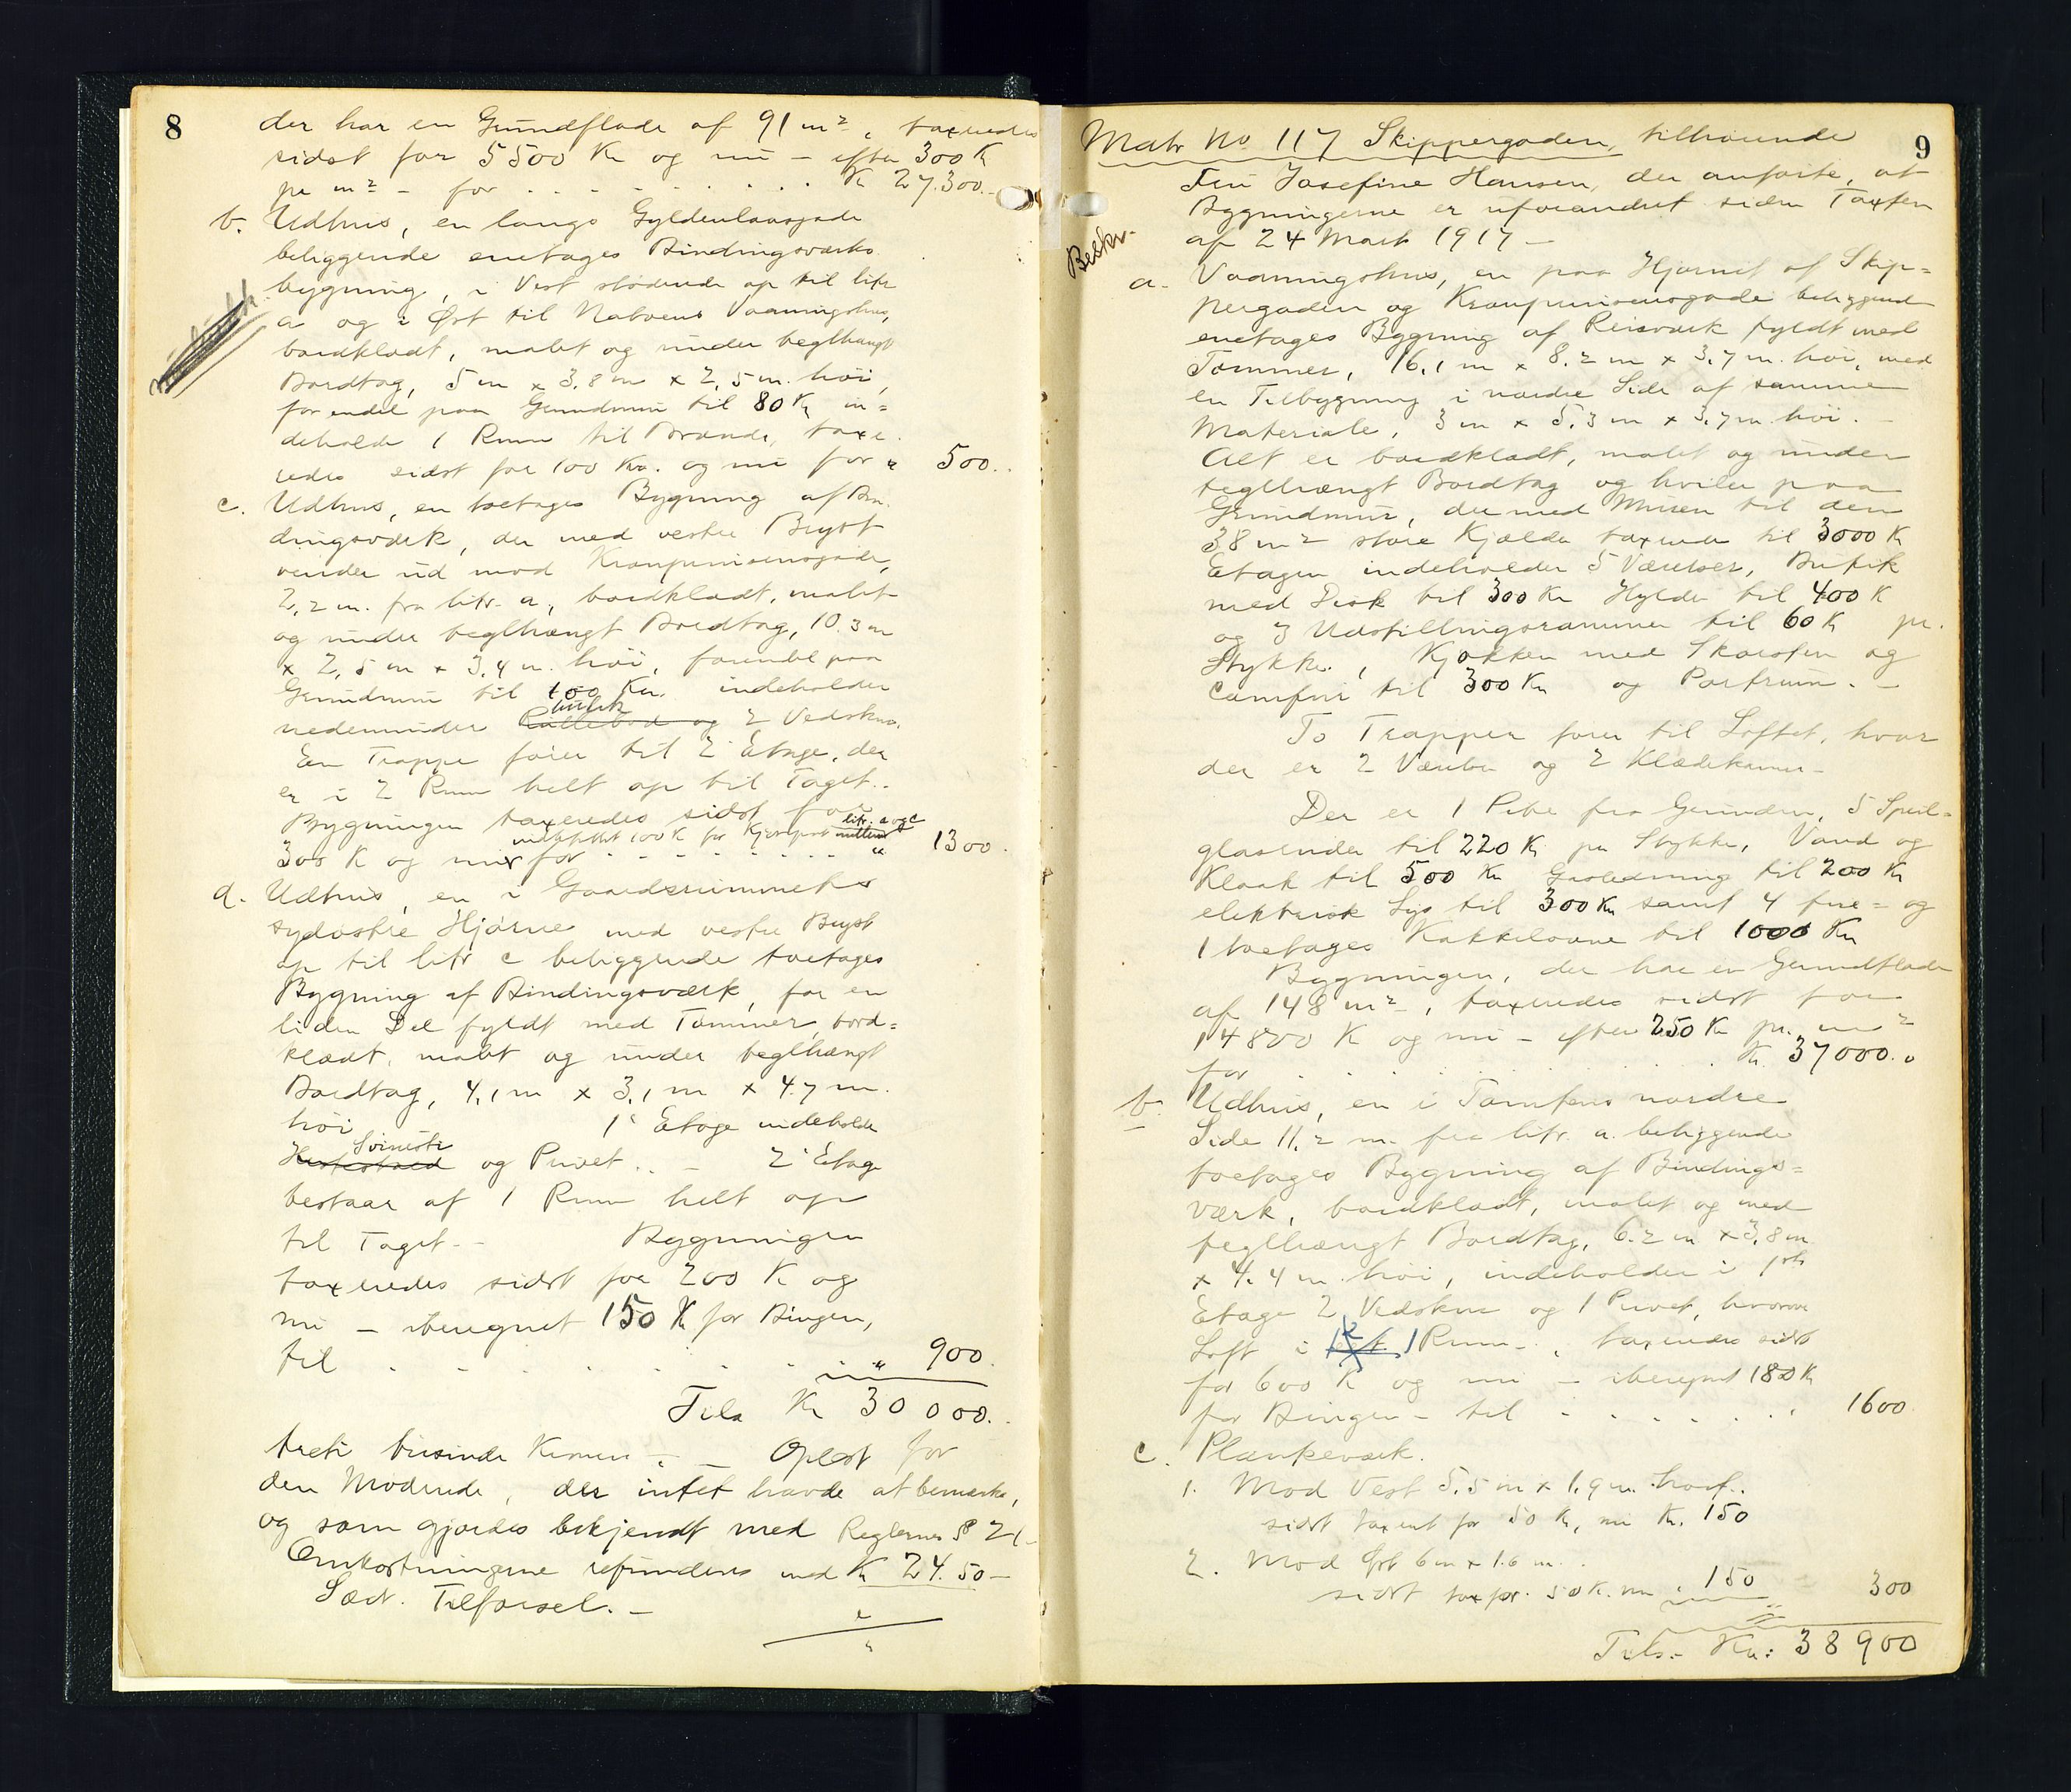 8
der har en Grundflade af 91 m², taxeredes
sidst for 5500 Kr og nu – efter 300 Kr
pr m² – for . . . . . . . . . Kr 27.300.–
b. Udhus, en langs Gyldenløvsgade
beliggende enetages Bindingsværks
bygning, i Vest stødende op til litr
a og i Øst til Naboens Vaaningshus,
bordklædt, malet og under teglhængt
Bordtag, 5 m x 3,8 m x 2,5 m. høi,
for endel paa Grundmur til 80 Kr in=
deholder 1 Rum til Brænde, taxe
redes sidst for 100 Kr. og nu for " 500..
c. Udhus, en toetages Bygning af Bin
dingsværk, der med vestre Bryst
vender ud mod Kronprinsensgade,
2,2 m. fra litr. a, bordklædt, malet
og under teglhængt Bordtag, 10.3 m
x 2,5 m x 3,4 m. høi, forendel paa
Grundmur til 100 Kr. indeholder
butik
nedenunder Rullebod og 2 Vedskur.
En Trappe fører til 2' Etage, der
er i 2 Rum helt op til Taget..
Bygningen taxeredes sidst for
litr. a og c
indbefattet 100 K for Kjøreport mellem
300 K og nu for . . . . . . . . . " 1300.
d. Udhus, en i Gaardsrummets
sydøstre Hjørne med vestre Bryst
op til litr c beliggende toetages
Bygning af Bindingsværk, for en
liden Del fyldt med Tømmer, bord=
klædt, malet og under teglhængt
Bordtag, 4,1 m x 3,1 m x 4.7 m.
høi 1' Etage indeholder
Svinesti
Hestestald og Privet.. – 2' Etage
bestaar af 1 Rum helt op
til Taget. – Bygningen
taxeredes sidst for 200 K og
nu – iberegnet 150 K for Bingen,
til . . . . . . . . . " 900.
Tils Kr 30000..
treti tusinde Kroner. – Oplæst for
den Mødende, der intet havde at bemærke,
og som gjordes bekjendt med Reglernes § 21 –
Omkostningerne refunderes med Kr 24.50 –
Sædv. Tilførsel. –
9
Matr No 117 Skippergaden, tilhørende
Fru Josefine Hansen, der anførte, at
Bygningerne er uforandret siden Taxten
af 24 Mart 1917 –
Beskr.
a. Vaaningshus, en paa Hjørnet af Skip=
pergaden og Kronprinsensgade beliggende
enetages Bygning af Reisværk fyldt med
Tømmer, 16,1 m x 8.2 m x 3,7 m. høi, med
en Tilbygning i nordre Side af samme
Materiale, 3 m x 5,3 m x 3,7 m. høi. –
Alt er bordklædt, malet og under
teglhængt Bordtag og hviler paa
Grundmur, der med Muren til den
38 m² store Kjælder taxeres til 3000 Kr
Etagen indeholder 5 Værelser, Butik
med Disk til 300 Kr Hylder til 400 K
og 3 Udstillingsrammer til 60 Kr pr.
Stykke, Kjøkken med Skorsten og
Comfur til 300 Kr og Portrum. –
To Trapper fører til Loftet, hvor
der er 2 Værelser og 2 Klædekamre –
Der er 1 Pibe fra Grunden, 5 Speil=
glasruder til 220 Kr pr Stykke, Vand og
Kloak til 500 Kr Gasledning til 200 Kr
elektrisk Lys til 300 Kr samt 4 fire= og
1 toetages Kakkelovne til 1000 Kr
Bygningen, der har en Grundflade
af 148 m², taxeredes sidst for
14800 K og nu – efter 250 Kr pr. m²
for . . . . . . . . . Kr. 37000..
b. Udhus, en i Tomtens nordre
Side 11,2 m. fra litr. a. beliggende
toetages Bygning af Bindings=
værk, bordklædt, malet og med
teglhængt Bordtag, 6.2 m x 3,8 m
x 4.4 m. høi, indeholder i 1ste
Etage 2 Vedskur og 1 Privet, hvorover
Loft i 1 Rum –, taxeredes sidst
for 600 K og nu – iberegnet 180 K
for Bingen – til . . . . . . . 1600
c. Plankeværk.
1. Mod Vest 5,5 m x 1,9 m. høit..
sidst taxert for 50 K, nu Kr. 150
2. Mod Øst 6 m x 1.6 m..
sidst tax for 50 K. nu " 150 300
Tils. – Kr: 38900